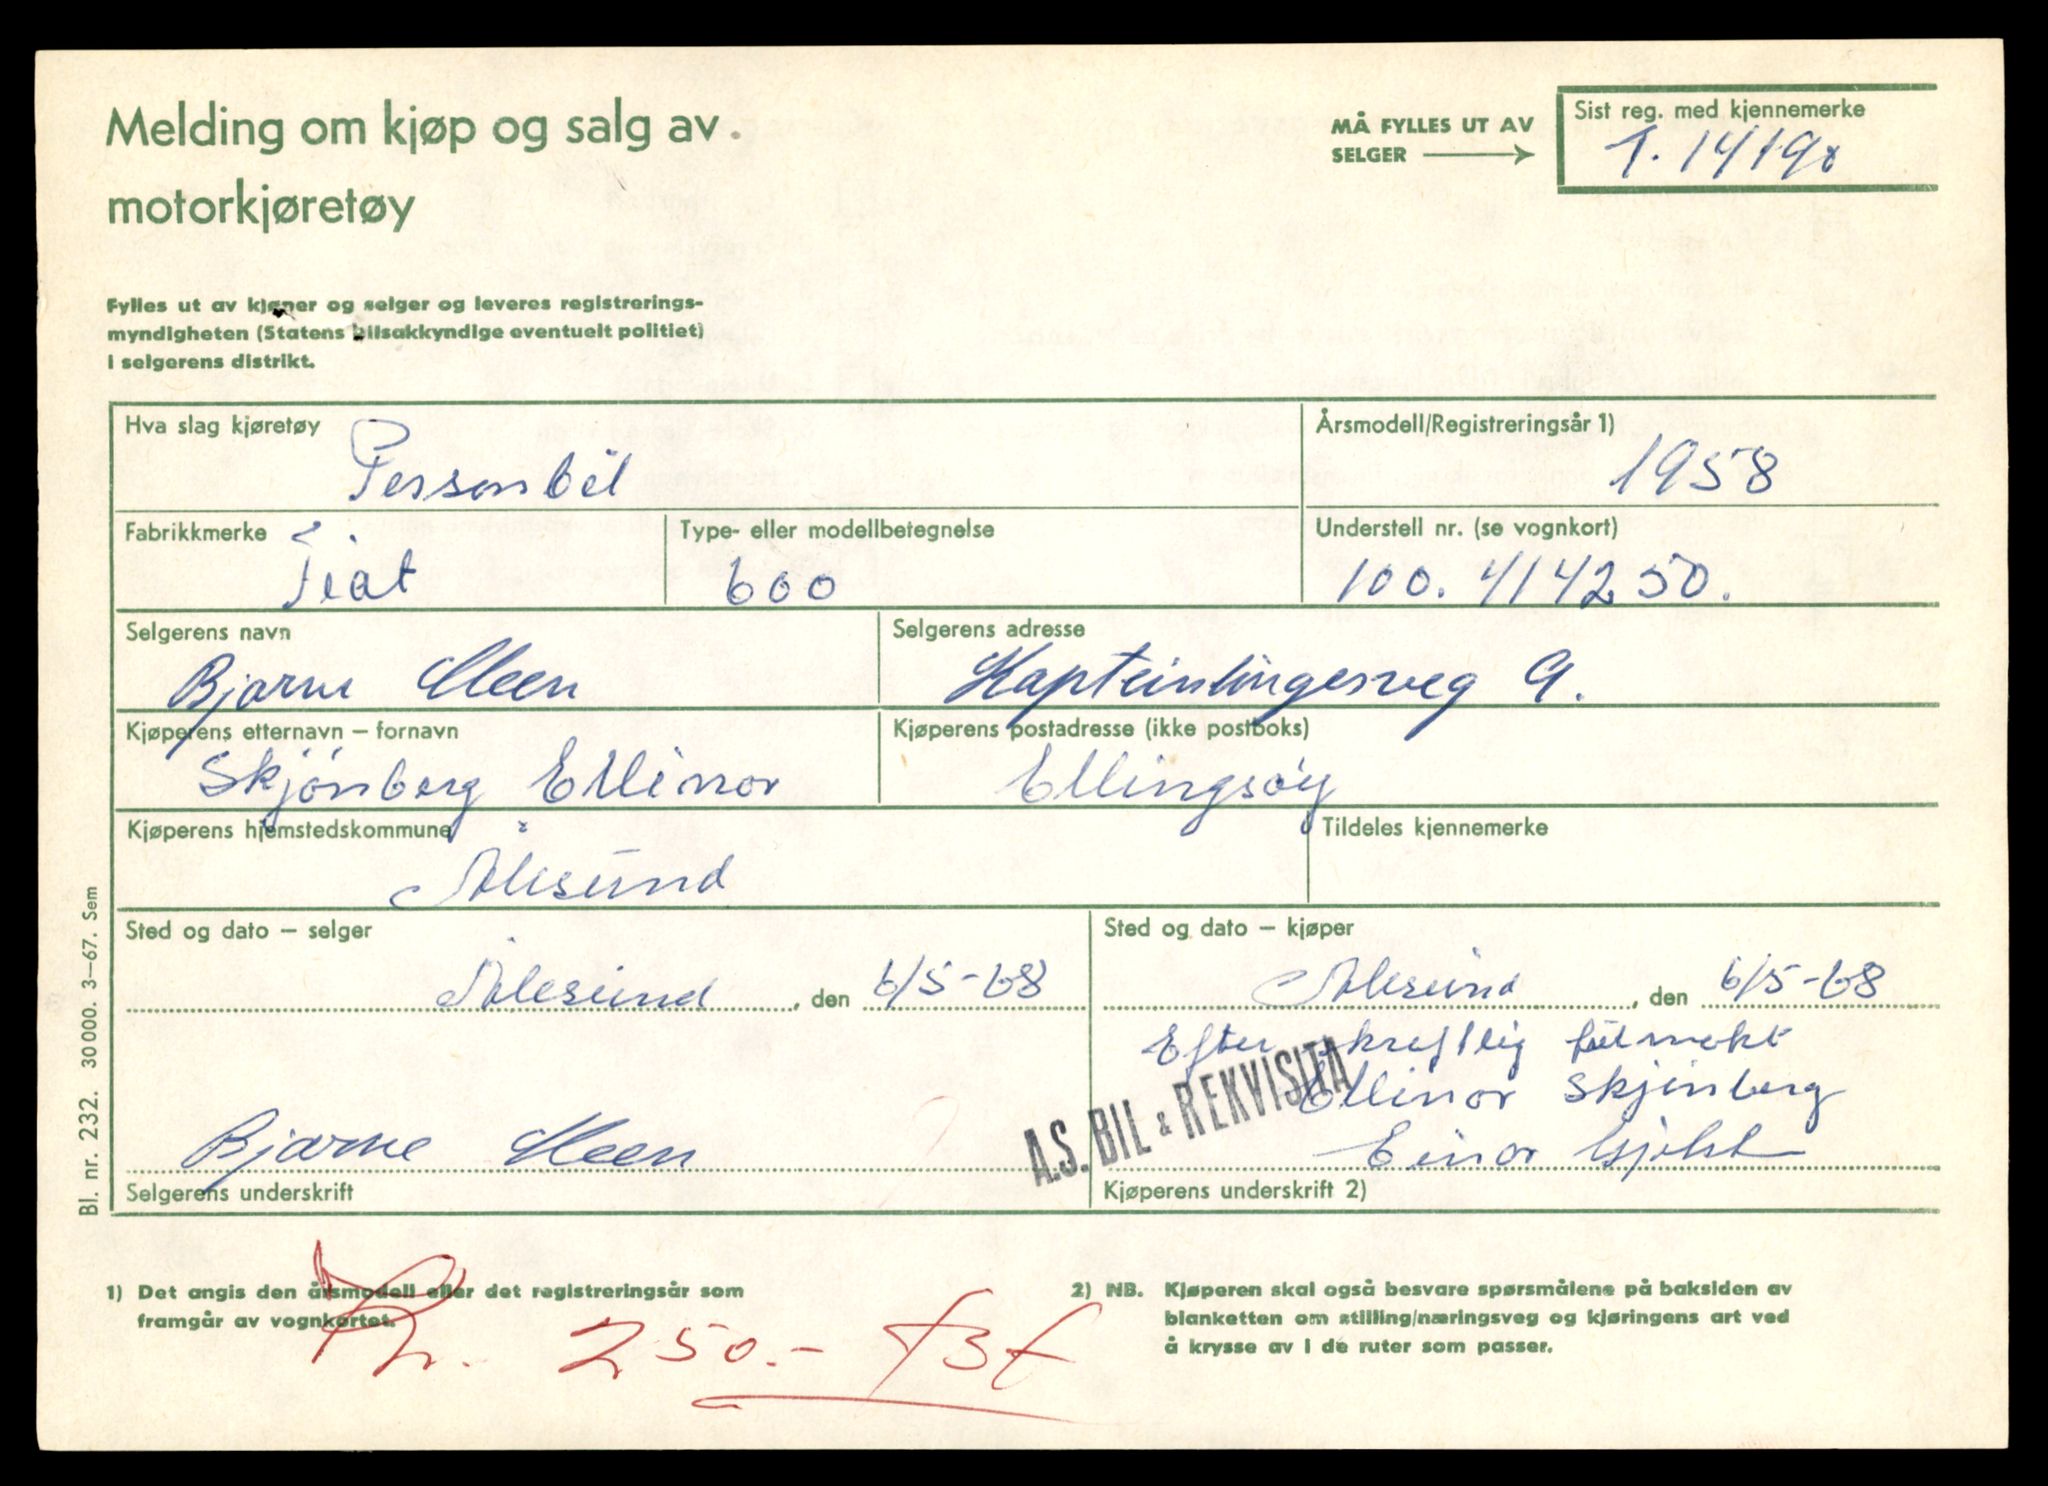 Melding om kjøp og salg av
motorkjøretøy
MÅ FYLLES UT AV
SELGER
Sist reg. med kjennemerke
T. 14190
Fylles ut av kjøper og selger og leveres registrerings-
myndigheten (Statens bilsakkyndige eventuelt politiet)
i selgerens distrikt.
Hva slag kjøretøy
Personbil
Årsmodell/Registreringsår 1)
1958
Fabrikkmerke
Fiat
Type- eller modellbetegnelse
600
Understell nr. (se vognkort)
100. 414250.
Selgerens navn
Bjarne Meen
Selgerens adresse
Kapteinlingesveg 9.
Kjøperens etternavn – fornavn
Skjónberg Ellinor
Kjøperens postadresse (ikke postboks)
Ellingsóy
Kjøperens hjemstedskommune
Ålesund
Tildeles kjennemerke
Sted og dato – selger
Ålesund, den 6/5-68
Sted og dato – kjøper
Ålesund, den 6/5-68
Efter skriftlig fullmakt
Ellinor Skjónberg
Einar
A.S. BIL & REKVISITA
Bjarne Meen
Selgerens underskrift
Kjøperens underskrift 2)
Bl. nr. 232. 30 000. 3–67. Sem
1) Det angis den årsmodell eller det registreringsår som
framgår av vognkortet.
2) NB. Kjøperen skal også besvare spørsmålene på baksiden av
blanketten om stilling/næringsveg og kjøringens art ved
å krysse av i de ruter som passer.
Kr. 250.-